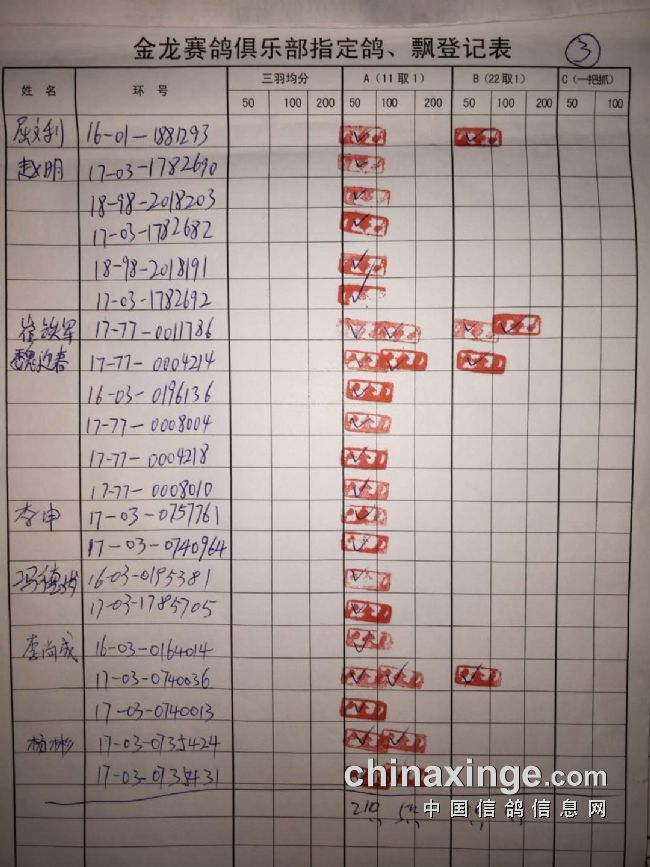 金龙赛鸽俱乐部指定鸽、飘登记表 ③
姓名 环号 三羽均分 A（11取1） B（22取1） C（一把抓）
50 100 200 50 100 200 50 100 200 50 100
屈文利 16-01-1881293
赵明 17-03-1782690
18-98-2018203
17-03-1782682
18-98-2018191
17-03-1782692
崔铁军 17-77-0011786
魏迎春 17-77-0004214
16-03-0196136
17-77-0008004
17-77-0004218
17-77-0008010
李申 17-03-0757761
17-03-0740964
冯德 16-03-0195381
17-03-1785705
李尚成 16-03-0164014
17-03-0740036
17-03-0740013
杨彬 17-03-0735424
17-03-0735431
chinaxinge.com
中国信鸽信息网